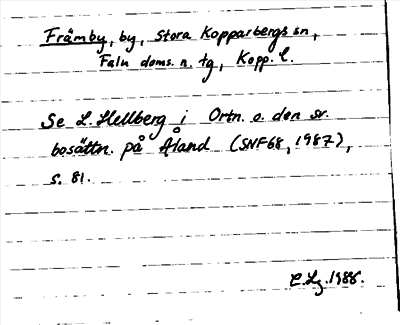 Främby, by, Stora Kopparbergs sn,
Falu doms. n. tg, Kopp. l.
Se L. Hellberg i Ortn. o. den sv.
bosättn. på Åland (SNF68, 1987),
s. 81.
C.Lg. 1988.